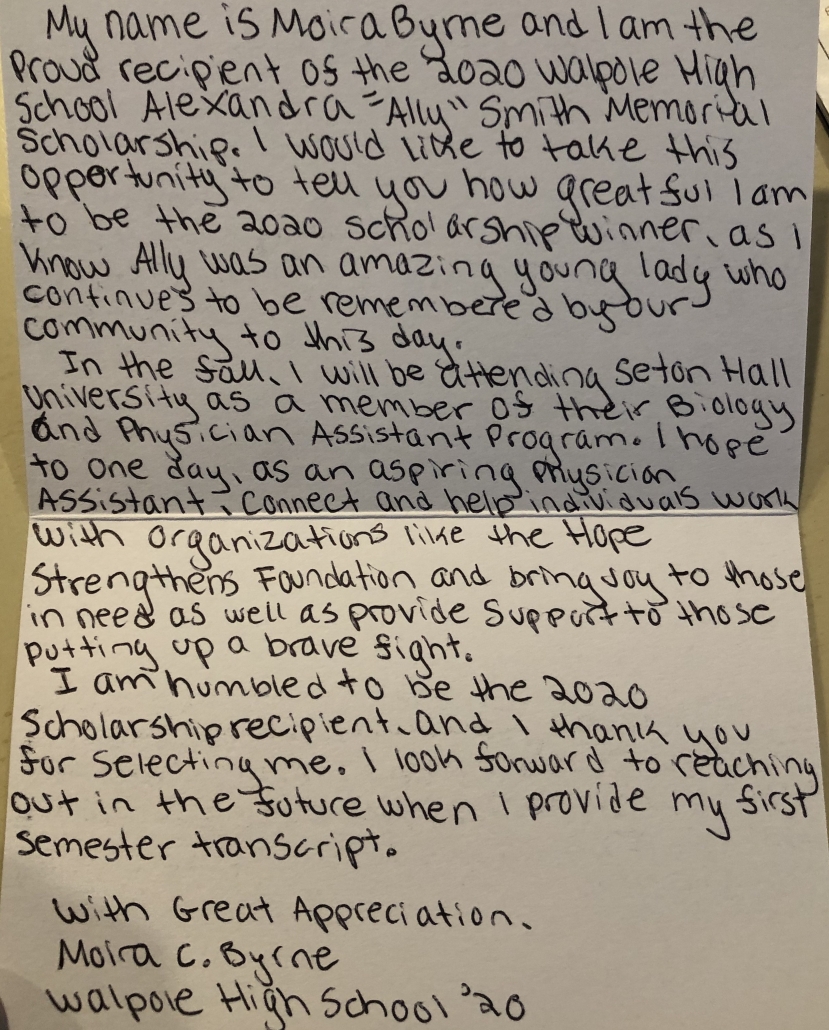 My name is Moira Byrne and I am the
Proud recipient of the 2020 Walpole High
School Alexandra "Ally" Smith Memorial
Scholarship. I would like to take this
opportunity to tell you how greatful I am
to be the 2020 scholarship winner, as I
know Ally was an amazing young lady who
continues to be remembered by our
community to this day.
In the fall, I will be attending Seton Hall
University as a member of their Biology
and Physician Assistant Program. I hope
to one day, as an aspiring Physician
Assistant, connect and help individuals work
with organizations like the Hope
Strengthens Foundation and bring joy to those
in need as well as provide support to those
putting up a brave fight.
I am humbled to be the 2020
Scholarship recipient, and I thank you
for selecting me. I look forward to reaching
out in the future when I provide my first
semester transcript.
With Great Appreciation,
Moira C. Byrne
Walpole High School '20